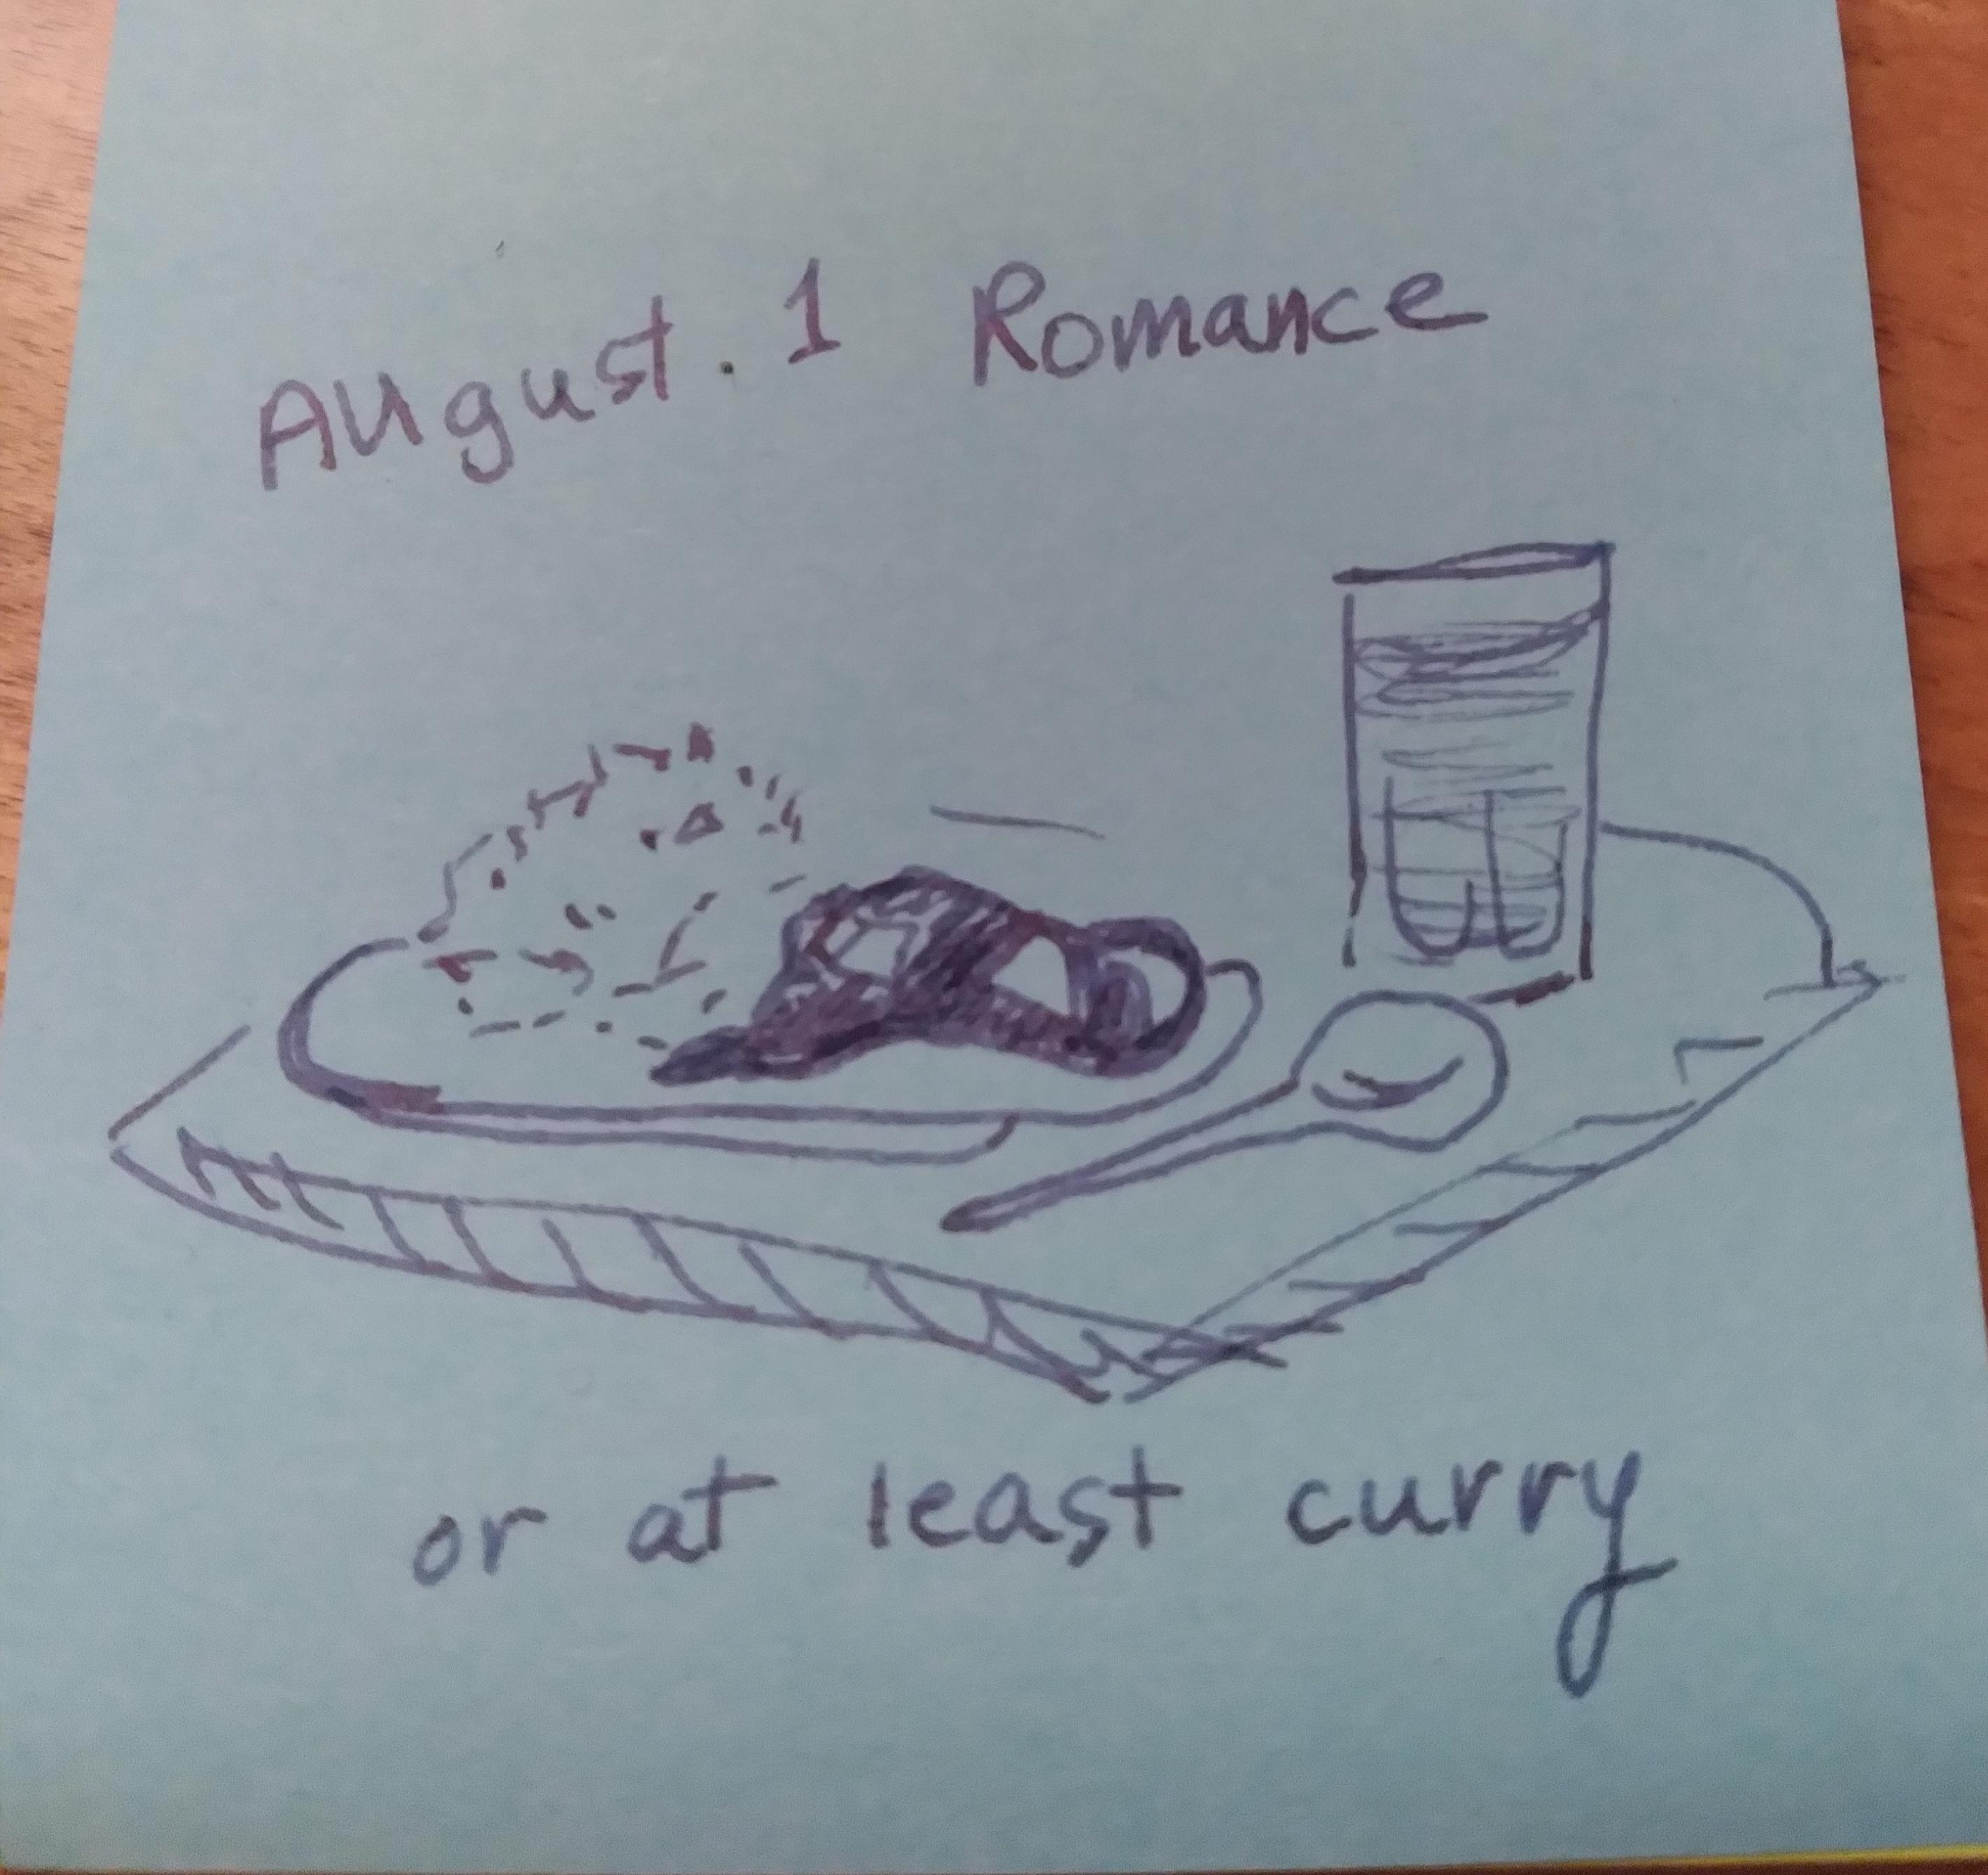 August. 1 Romance
or at least curry